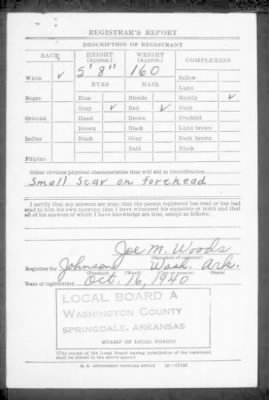 REGISTRAR'S REPORT
DESCRIPTION OF REGISTRANT
RACE HEIGHT (Approx.) WEIGHT (Approx.) COMPLEXION
White ✓ 5' 8" 160 Sallow
EYES HAIR Light
Negro Blue Blonde Ruddy ✓
Gray ✓ Red ✓ Dark
Oriental Hazel Brown Freckled
Brown Black Light brown
Indian Black Gray Dark brown
Bald Black
Filipino
Other obvious physical characteristics that will aid in identification
Small Scar on forehead
I certify that my answers are true; that the person registered has read or has had
read to him his own answers; that I have witnessed his signature or mark and that
all of his answers of which I have knowledge are true, except as follows:
Joe M. Woods
(Signature of registrar)
Registrar for Johnson Wash. Ark.
(Precinct) (Ward) (City or county) (State)
Date of registration Oct. 16, 1940
LOCAL BOARD A
WASHINGTON COUNTY
SPRINGDALE, ARKANSAS
STAMP OF LOCAL BOARD
(The stamp of the Local Board having jurisdiction of the registrant
shall be placed in the above space)
U. S. GOVERNMENT PRINTING OFFICE